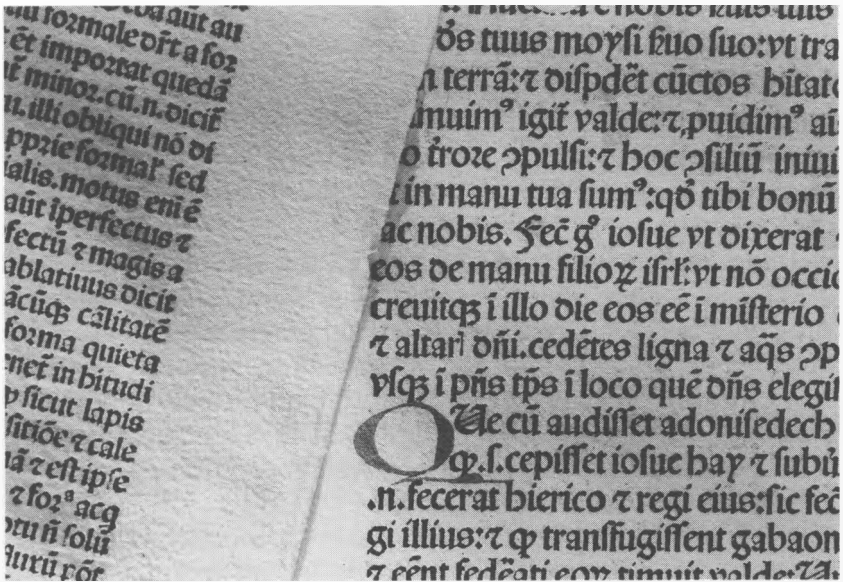 formale dr̄t a for
ēt importat quedā
minor. cū. n. dicit̄
illi obliqui nō di
pprie format sed
ialis. motus eni ē
aūt īperfectus ⁊
fectū ⁊ magis a
ablatiuus dicit
ācūqꝫ cālitatē
forma quieta
net̄ in bitudi
ꝙ sicut lapis
sitiōe ⁊ cale
nā ⁊ est ipse
⁊ forᵃ acq
otu n̄ solū
uturū pōt
ds̄ tuus moysi ẜuo suo: vt tra
terrā: ⁊ dispdēt cūctos hitato
muimꝰ igit̄ valde: ⁊ ꝓuidimꝰ ai
t̄rore ꝯpulsi: ⁊ hoc ꝯsiliū iniui
in manu tua sumꝰ: qd̄ tibi bonū
ac nobis. Fec̄ gͦ iosue vt dixerat
eos de manu filioꝝ isrl̄: vt nō occi
creuitqꝫ ī illo die eos eē ī misterio
⁊ altari dn̄i. cedētes ligna ⁊ aq̄s ꝯp
vsqꝫ ī pn̄s tp̄s ī loco quē dn̄s elegit
QUe cū audisset adonisedech
ꝙ. s. cepisset iosue hay ⁊ subū
.n. fecerat hierico ⁊ regi eius: sic fec̄
gi illius: ⁊ ꝙ transfugissent gabaon
⁊ eēnt fedēati eoꝝ timuit valde: